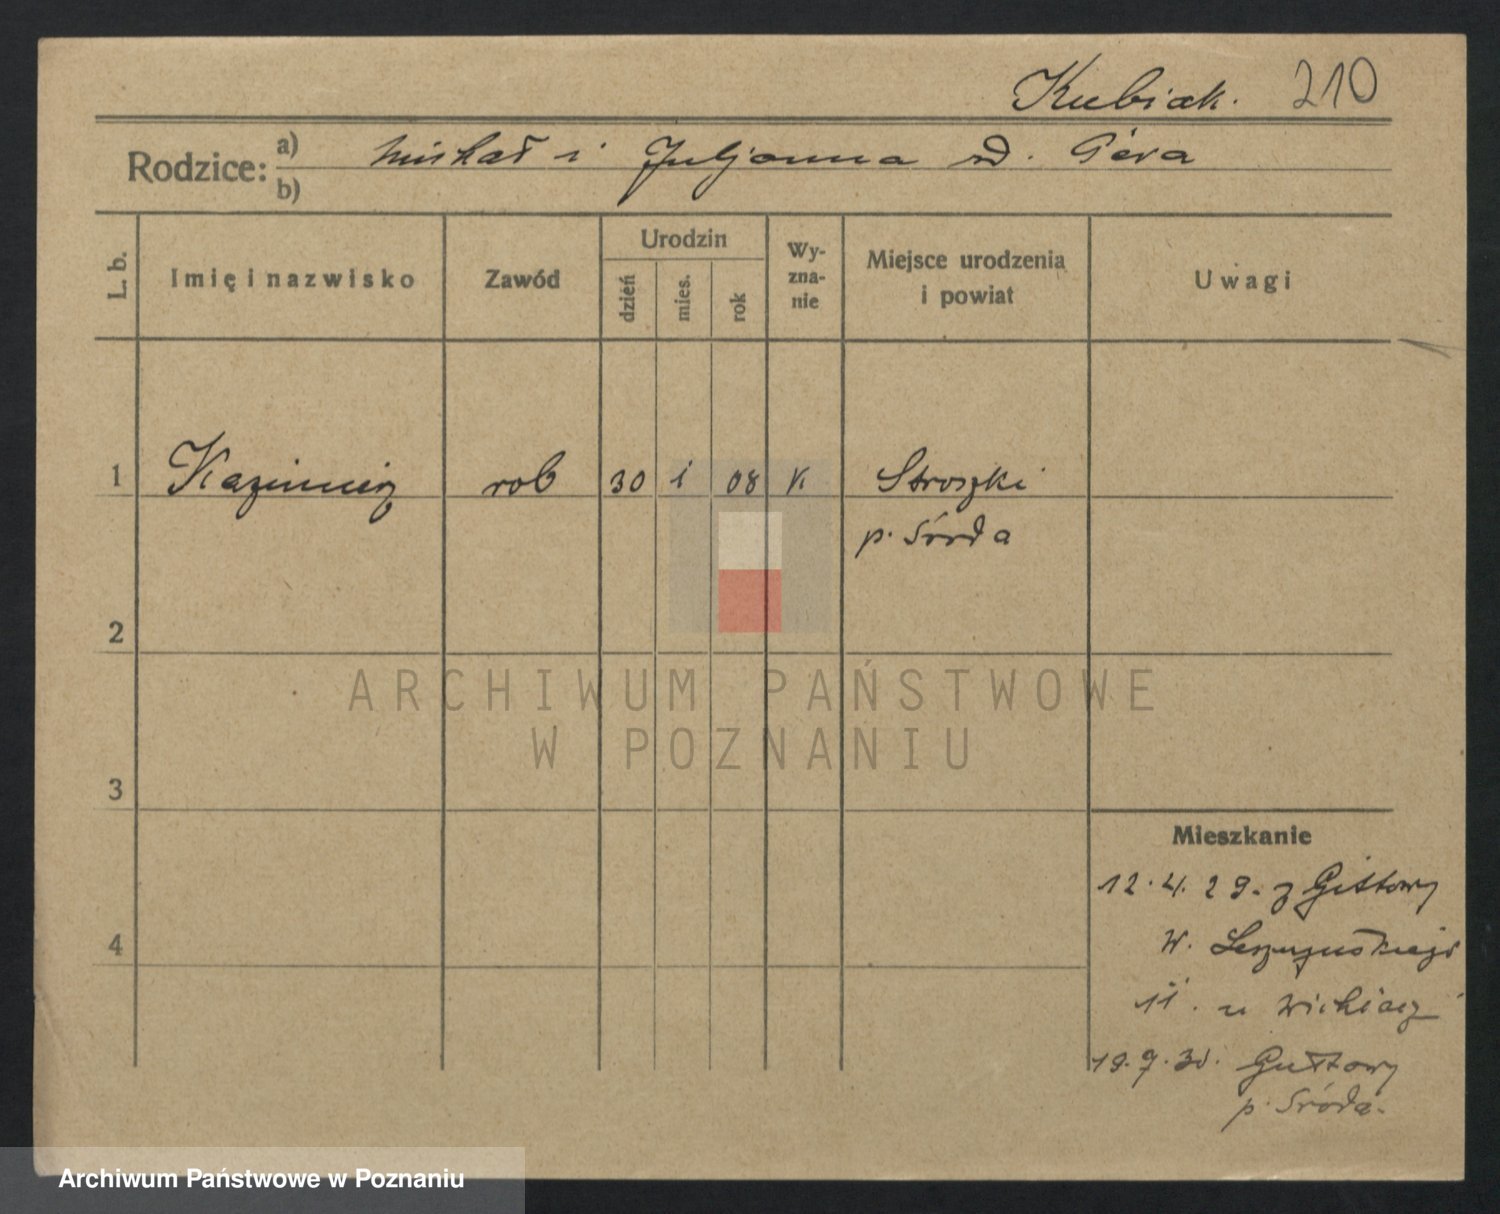 Kubiak. 210
Rodzice: a) Michał i Juljanna rd. Góra
b)
L. b. Imię i nazwisko Zawód Urodzin dzień mies. rok Wyznanie Miejsce urodzenia i powiat Uwagi
1 Kazimierz rob 30 1 08 K Stroszki
p. Środa
2
ARCHIWUM PAŃSTWOWE
W POZNANIU
3
Mieszkanie
12.4.29. z
4
W.
11. u
19.9.30. Gułtowy
p. Środa.
Archiwum Państwowe w Poznaniu